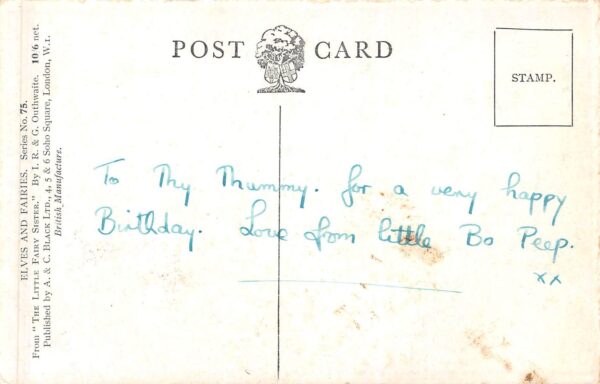 POST CARD
STAMP.
To My Mummy. for a very happy
Birthday. Love from little Bo Peep.
xx
ELVES AND FAIRIES. Series No. 75.
From "THE LITTLE FAIRY SISTER." By I. R. & G. Outhwaite. 10/6 net.
Published by A. & C. BLACK LTD., 4, 5 & 6 Soho Square, London, W.1.
British Manufacture.